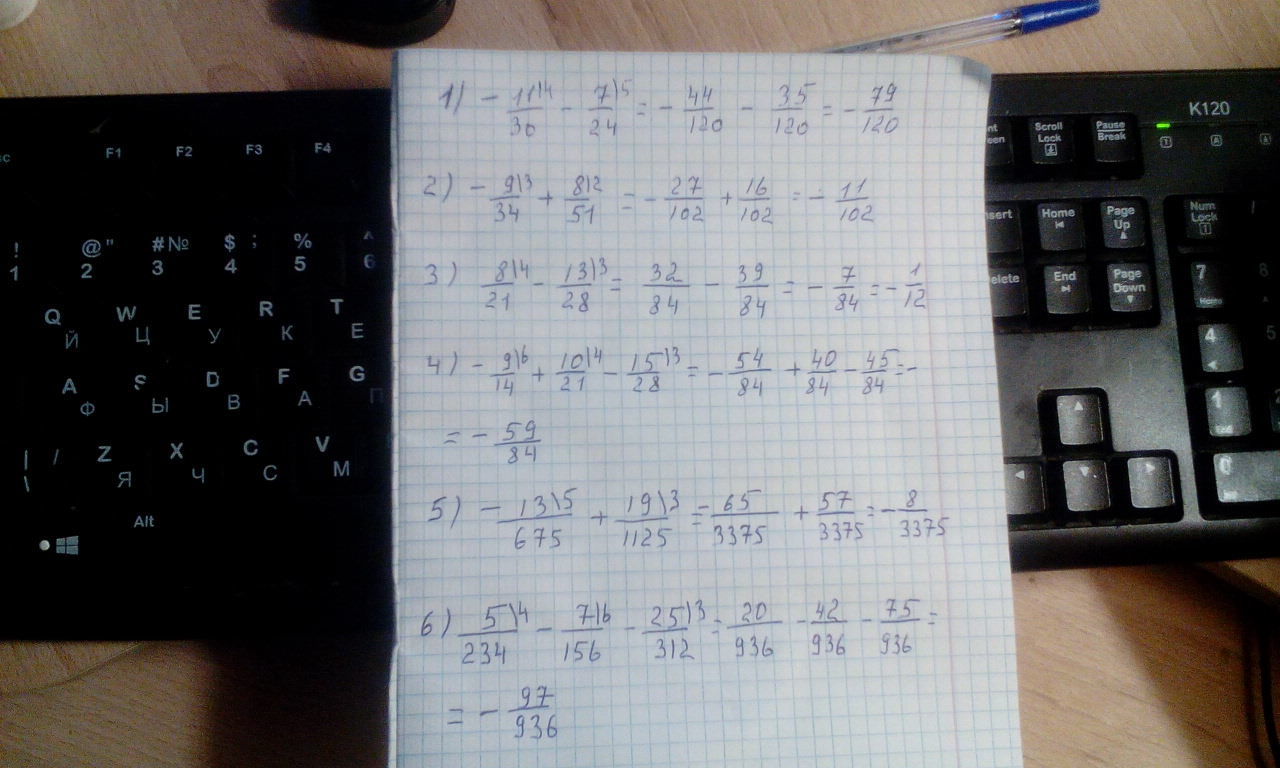 1) - 11\4/30 - 7\5/24 = - 44/120 - 35/120 = - 79/120
2) - 9\3/34 + 8\2/51 = - 27/102 + 16/102 = - 11/102
3) 8\4/21 - 13\3/28 = 32/84 - 39/84 = - 7/84 = - 1/12
4) - 9\6/14 + 10\4/21 - 15\3/28 = - 54/84 + 40/84 - 45/84 = -
= - 59/84
5) - 13\5/675 + 19\3/1125 = - 65/3375 + 57/3375 = - 8/3375
6) 5\4/234 - 7\6/156 - 25\3/312 = 20/936 - 42/936 - 75/936 =
= - 97/936
F1 F2 F3 F4
! 1 @ " 2 # № 3 $ ; 4 % 5 ^ 6
Q Й W Ц E У R К T Е
A Ф S Ы D В F А G П
| \ / Z Я X Ч C С V М
Alt
K120
Scroll Lock
Pause Break
Home
Page Up
End
Page Down
Num Lock
7 Home
8
4
5
1
0